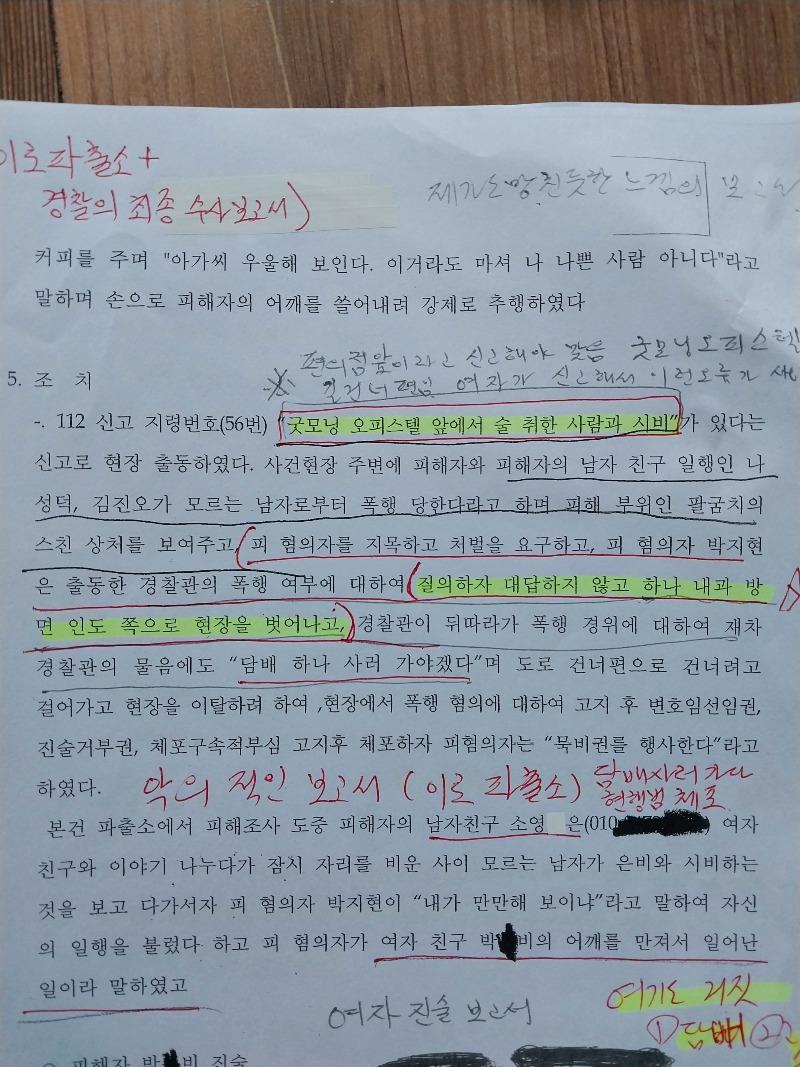 이로파출소 +
경찰의 최종 수사보고서)
제가 도망친듯한 느낌의 보고서
커피를 주며 "아가씨 우울해 보인다. 이거라도 마셔 나 나쁜 사람 아니다"라고
말하며 손으로 피해자의 어깨를 쓸어내려 강제로 추행하였다
편의점앞이라고 신고해야 맞음 굿모닝오피스텔
길건너편임 여자가 신고해서 이런오류가
5. 조 치
-. 112 신고 지령번호(56번) "굿모닝 오피스텔 앞에서 술 취한 사람과 시비"가 있다는
신고로 현장 출동하였다. 사건현장 주변에 피해자와 피해자의 남자 친구 일행인 나
성덕, 김진오가 모르는 남자로부터 폭행 당한다라고 하며 피해 부위인 팔굼치의
스친 상처를 보여주고, 피 혐의자를 지목하고 처벌을 요구하고, 피 혐의자 박지현
은 출동한 경찰관의 폭행 여부에 대하여 질의하자 대답하지 않고 하나 내과 방
면 인도 쪽으로 현장을 벗어나고, 경찰관이 뒤따라가 폭행 경위에 대하여 재차
경찰관의 물음에도 "담배 하나 사러 가야겠다"며 도로 건너편으로 건너려고
걸어가고 현장을 이탈하려 하여 ,현장에서 폭행 혐의에 대하여 고지 후 변호임선임권,
진술거부권, 체포구속적부심 고지후 체포하자 피혐의자는 "묵비권을 행사한다"라고
하였다.
악의 적인 보고서 (이로 파출소) 담배사러 가다
현행범 체포
본건 파출소에서 피해조사 도중 피해자의 남자친구 소영 은(010 ) 여자
친구와 이야기 나누다가 잠시 자리를 비운 사이 모르는 남자가 은비와 시비하는
것을 보고 다가서자 피 혐의자 박지현이 "내가 만만해 보이냐"라고 말하여 자신
의 일행을 불렀다 하고 피 혐의자가 여자 친구 박 비의 어깨를 만져서 일어난
일이라 말하였고
여자 진술 보고서
여기도 거짓
① 담배 ②
피해자 박 비 진술